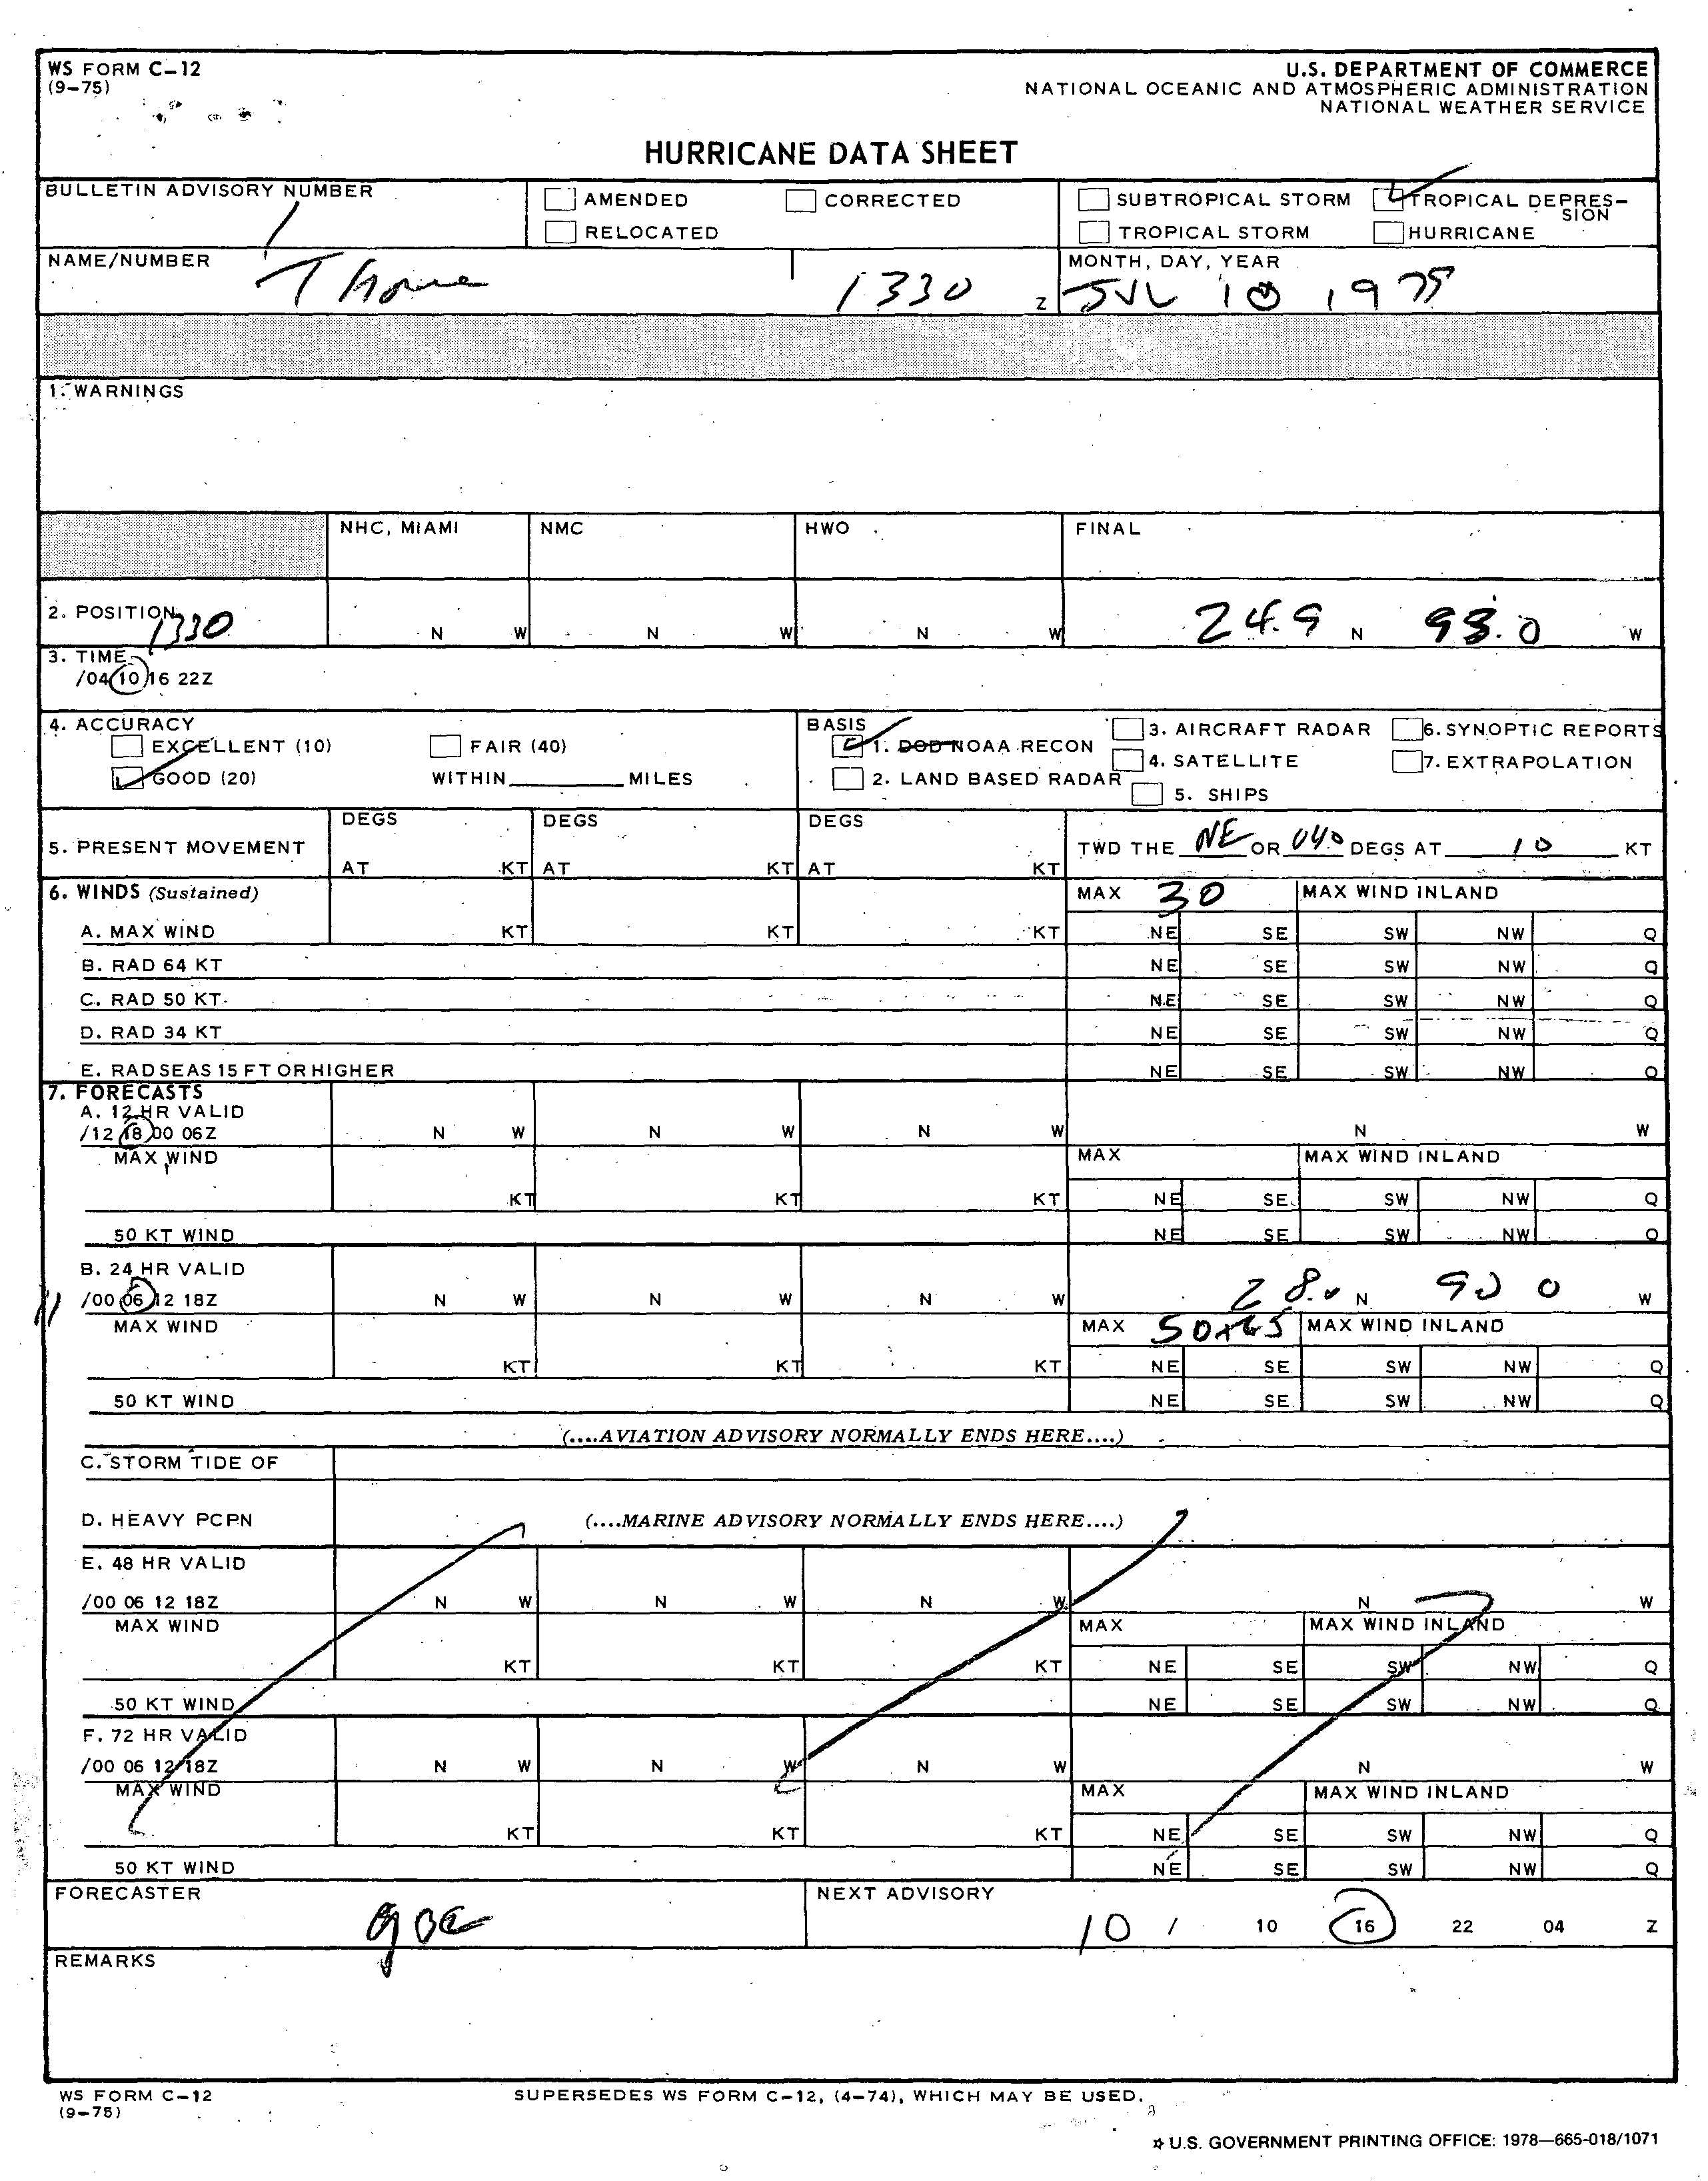 WS FORM C-12
(9-75)
U.S. DEPARTMENT OF COMMERCE
NATIONAL OCEANIC AND ATMOSPHERIC ADMINISTRATION
NATIONAL WEATHER SERVICE
HURRICANE DATA SHEET
BULLETIN ADVISORY NUMBER
1
AMENDED
CORRECTED
RELOCATED
SUBTROPICAL STORM
TROPICAL DEPRES-
SION
TROPICAL STORM
HURRICANE
NAME/NUMBER
1330 Z
MONTH, DAY, YEAR
JUL 10 1979
1. WARNINGS
NHC, MIAMI NMC HWO FINAL
2. POSITION 1330 N W N W N W 24.9 N 93.0 W
3. TIME
/04 10 16 22Z
4. ACCURACY
EXCELLENT (10) FAIR (40)
GOOD (20) WITHIN MILES
BASIS
1. DOD NOAA RECON
2. LAND BASED RADAR
3. AIRCRAFT RADAR
4. SATELLITE
5. SHIPS
6. SYNOPTIC REPORTS
7. EXTRAPOLATION
5. PRESENT MOVEMENT
DEGS DEGS DEGS
AT KT AT KT AT KT
TWD THE NE OR 040 DEGS AT 10 KT
6. WINDS (Sustained) MAX 30 MAX WIND INLAND
A. MAX WIND KT KT KT NE SE SW NW Q
B. RAD 64 KT NE SE SW NW Q
C. RAD 50 KT NE SE SW NW Q
D. RAD 34 KT NE SE SW NW Q
E. RAD SEAS 15 FT OR HIGHER NE SE SW NW Q
7. FORECASTS
A. 12 HR VALID
/12 18 00 06Z N W N W N W N W
MAX WIND MAX MAX WIND INLAND
KT KT KT NE SE SW NW Q
50 KT WIND NE SE SW NW Q
B. 24 HR VALID
11 /00 06 12 18Z N W N W N W 28.0 N 90 0 W
MAX WIND MAX 50+65 MAX WIND INLAND
KT KT KT NE SE SW NW Q
50 KT WIND NE SE SW NW Q
(....AVIATION ADVISORY NORMALLY ENDS HERE....)
C. STORM TIDE OF
D. HEAVY PCPN (....MARINE ADVISORY NORMALLY ENDS HERE....)
E. 48 HR VALID
/00 06 12 18Z N W N W N W N W
MAX WIND MAX MAX WIND INLAND
KT KT KT NE SE SW NW Q
50 KT WIND NE SE SW NW Q
F. 72 HR VALID
/00 06 12 18Z N W N W N W N W
MAX WIND MAX MAX WIND INLAND
KT KT KT NE SE SW NW Q
50 KT WIND NE SE SW NW Q
FORECASTER
NEXT ADVISORY
10 / 10 16 22 04 Z
REMARKS
WS FORM C-12
(9-75)
SUPERSEDES WS FORM C-12, (4-74), WHICH MAY BE USED.
☆ U.S. GOVERNMENT PRINTING OFFICE: 1978—665-018/1071